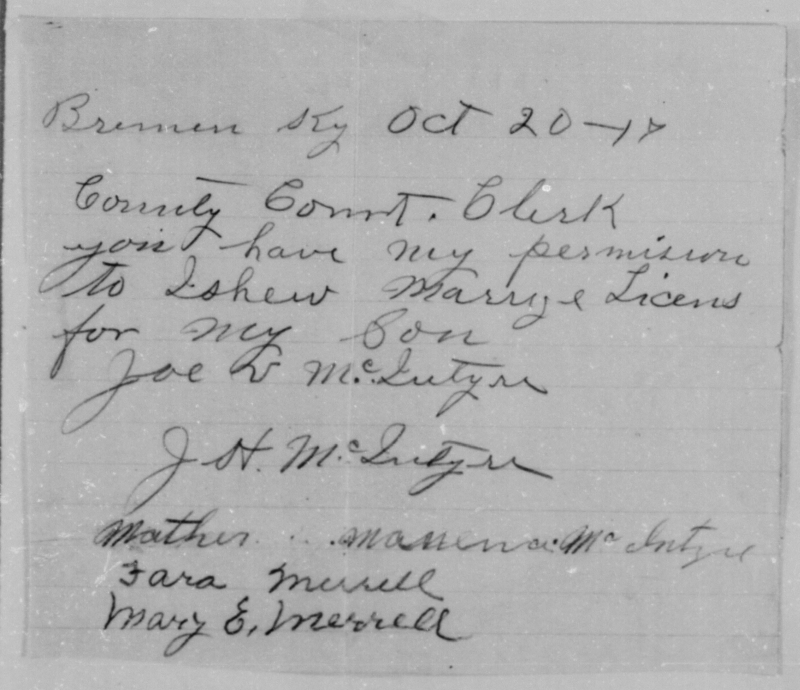 Bremen Ky Oct 20-17
County Comt. Clerk
you have my permision
to Ishew Marryge Licens
for my Son
Joe D McIntyre
J H. McIntyre
Mother McIntyre
Fara Merrell
Mary E. Merrell